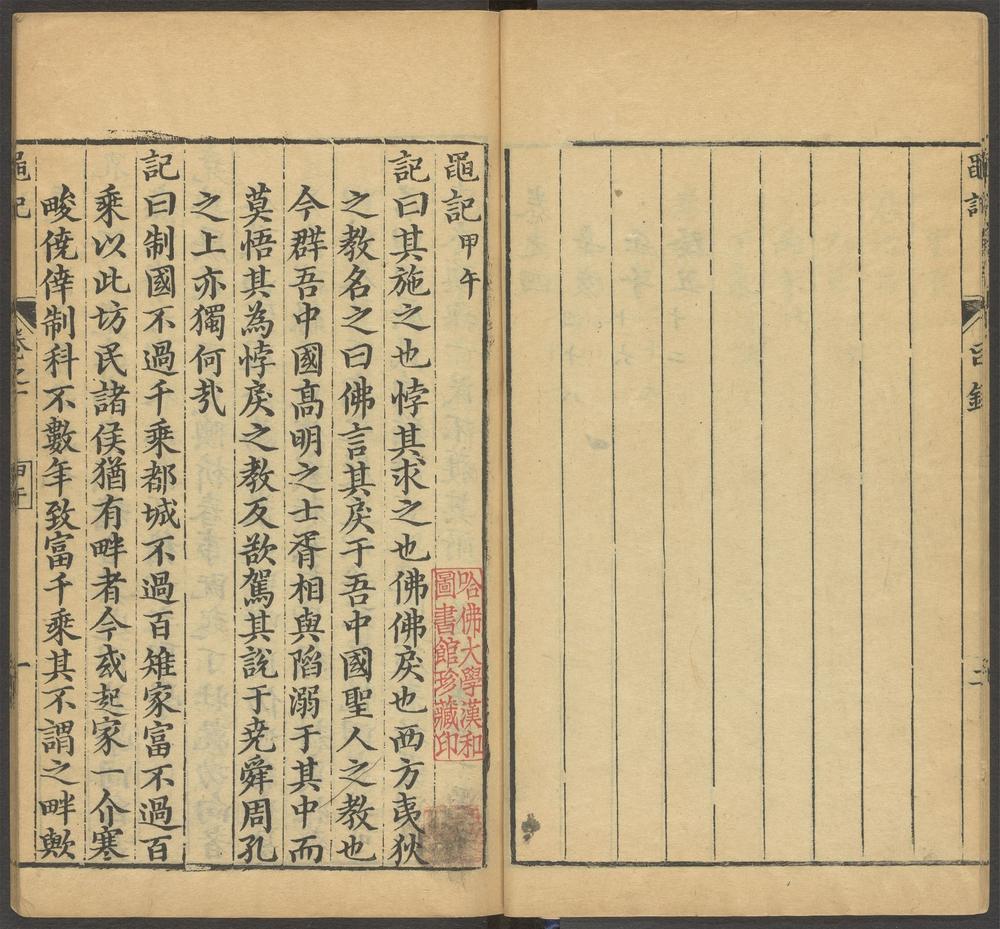 黽記 目錄 二
黽記 甲午
哈佛大學漢和
圖書館珍藏印
記曰其施之也悖其求之也佛佛戾也西方夷狄
之教名之曰佛言其戾于吾中國聖人之教也
今群吾中國高明之士胥相與陷溺于其中而
莫悟其為悖戾之教反欲駕其說于堯舜周孔
之上亦獨何㢤
記曰制國不過千乘都城不過百雉家富不過百
乘以此坊民諸侯猶有畔者今或起家一介寒
畯僥倖制科不數年致富千乘其不謂之畔歟
黽記 卷之一 甲午 一